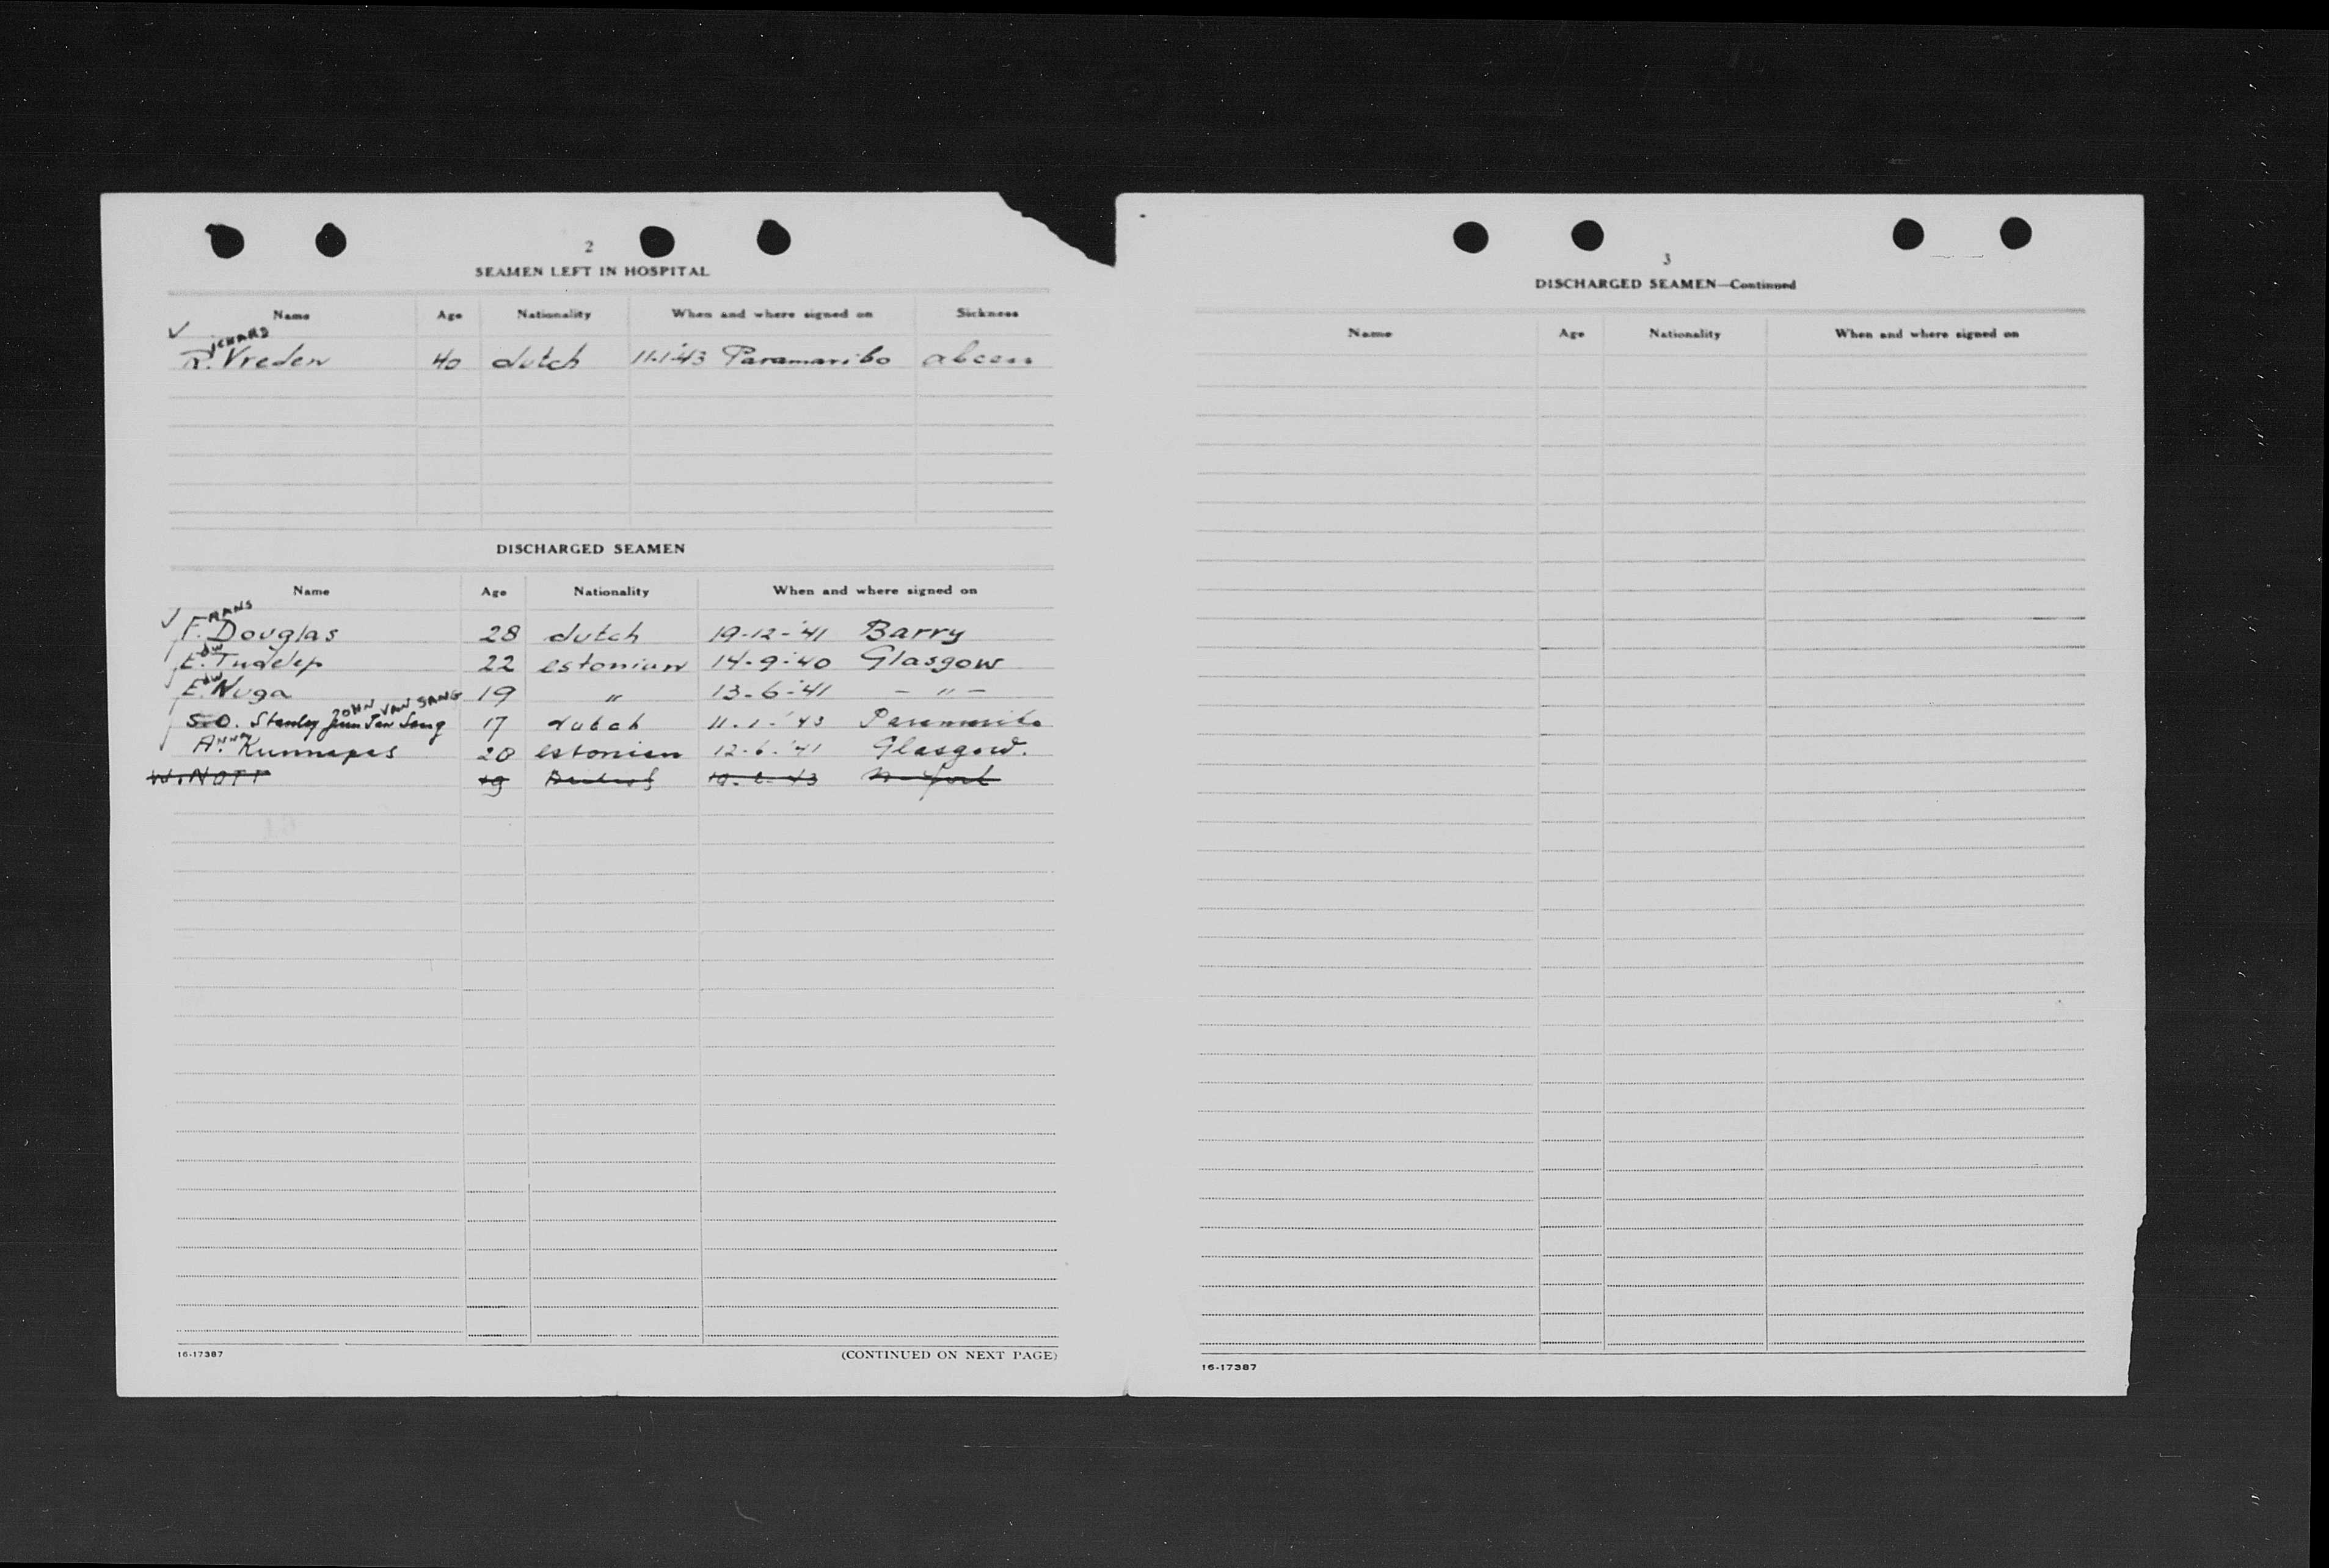 2
SEAMEN LEFT IN HOSPITAL
Name Age Nationality When and where signed on Sickness
ICHARD
R. Vreden 40 dutch 11-1-'43 Paramaribo abcess
DISCHARGED SEAMEN
Name Age Nationality When and where signed on
RANS
F. Douglas 28 dutch 19-12-'41 Barry
dw
E. 22 estonian 14-9-'40 Glasgow
dw
E. Nuga 19 " 13-6-'41 - " -
JOHN VAN SANG
S.O. Stanley 17 dutch 11-1-'43 Paramaribo
A. Kunnapas 20 estonian 12-6-'41 Glasgow.
W. NOTT 19 43
16-17387
(CONTINUED ON NEXT PAGE)
3
DISCHARGED SEAMEN—Continued
Name Age Nationality When and where signed on
16-17387